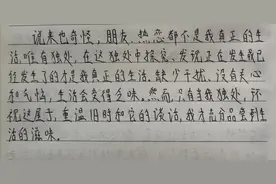 说来也奇怪，朋友、热恋都不是我真正的生
活，唯有独处，在这独处中探究、发现正在发生或已
经发生了的才是我真正的生活。缺少干扰，没有关心
和舌恼，生活会变得乏味。然而，只有当我独处，环
视这屋子，重温旧时和它的谈话，我才充分品尝到生
活的滋味。